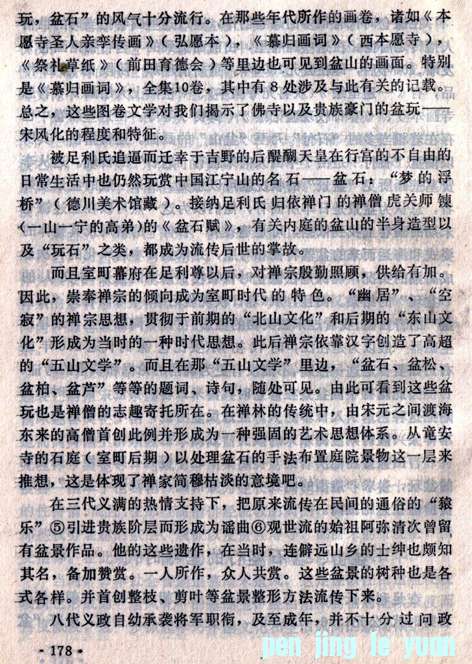 玩，盆石”的风气十分流行。在那些年代所作的画卷，诸如《本
愿寺圣人亲孪传画》（弘愿本），《慕归画词》（西本愿寺），
《祭礼草纸》（前田育德会）等里边也可见到盆山的画面。特别
是《慕归画词》，全集10卷，其中有8处涉及与此有关的记载。
总之，这些图卷文学对我们揭示了佛寺以及贵族豪门的盆玩——
宋风化的程度和特征。
被足利氏追逼而迁幸于吉野的后醍醐天皇在行宫的不自由的
日常生活中也仍然玩赏中国江宁山的名石——盆石：“梦的浮
桥”（德川美术馆藏）。接纳足利氏归依禅门的禅僧虎关师𫔍
(一山一宁的高弟)的《盆石赋》，有关内庭的盆山的半身造型以
及“玩石”之类，都成为流传后世的掌故。
而且室町幕府在足利尊以后，对禅宗殷勤照顾，供给有加。
因此，崇奉禅宗的倾向成为室町时代的特色。“幽居”、“空
寂”的禅宗思想，贯彻于前期的“北山文化”和后期的“东山文
化”形成为当时的一种时代思想。此后禅宗依靠汉字创造了高超
的“五山文学”。而且在那“五山文学”里边，“盆石、盆松、
盆柏、盆芦”等等的题词、诗句，随处可见。由此可看到这些盆
玩也是禅僧的志趣寄托所在。在禅林的传统中，由宋元之间渡海
东来的高僧首创此例并形成为一种强固的艺术思想体系。从竜安
寺的石庭（室町后期）以处理盆石的手法布置庭院景物这一层来
推想，这是体现了禅家简穆枯淡的意境吧。
在三代义满的热情支持下，把原来流传在民间的通俗的“猿
乐”⑤引进贵族阶层而形成为谣曲⑥观世流的始祖阿弥清次曾留
有盆景作品。他的这些遗作，在当时，连僻远山乡的士绅也颇知
其名，备加赞赏。一人所作，众人共赏。这些盆景的树种也是各
式各样。并首创整枝、剪叶等盆景整形方法流传下来。
八代义政自幼承袭将军职衔，及至成年，并不十分过问政
·178·
pen jing le yuan